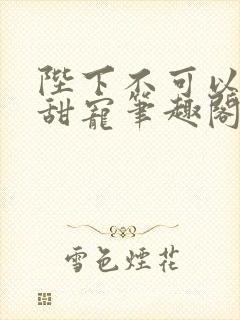 陛下不可以
甜寵筆趣閣
雪色煙花